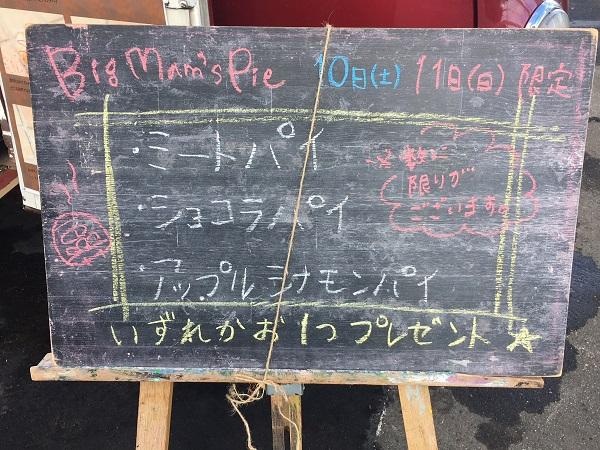 Big Mam's Pie 10日(土) 11日(日) 限定
・ミートパイ
・ショコラパイ
・アップルシナモンパイ
※数に
限りが
ございます。
いずれかお1つプレゼント☆